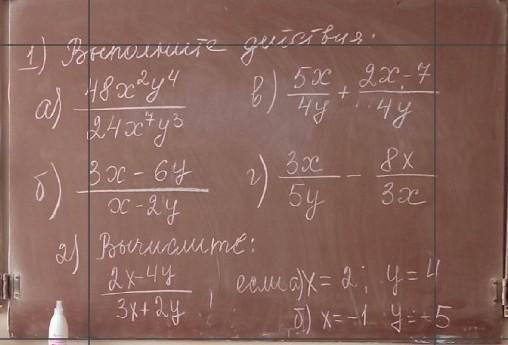 1) Выполните действия.
а) 48x²y⁴ / 24x⁷y³
в) 5x / 4y + 2x-7 / 4y
б) 3x - 6y / x - 2y
г) 3x / 5y - 8x / 3x
2) Вычислите:
2x-4y / 3x+2y, если а) x = 2; y = 4
б) x = -1 y = -5